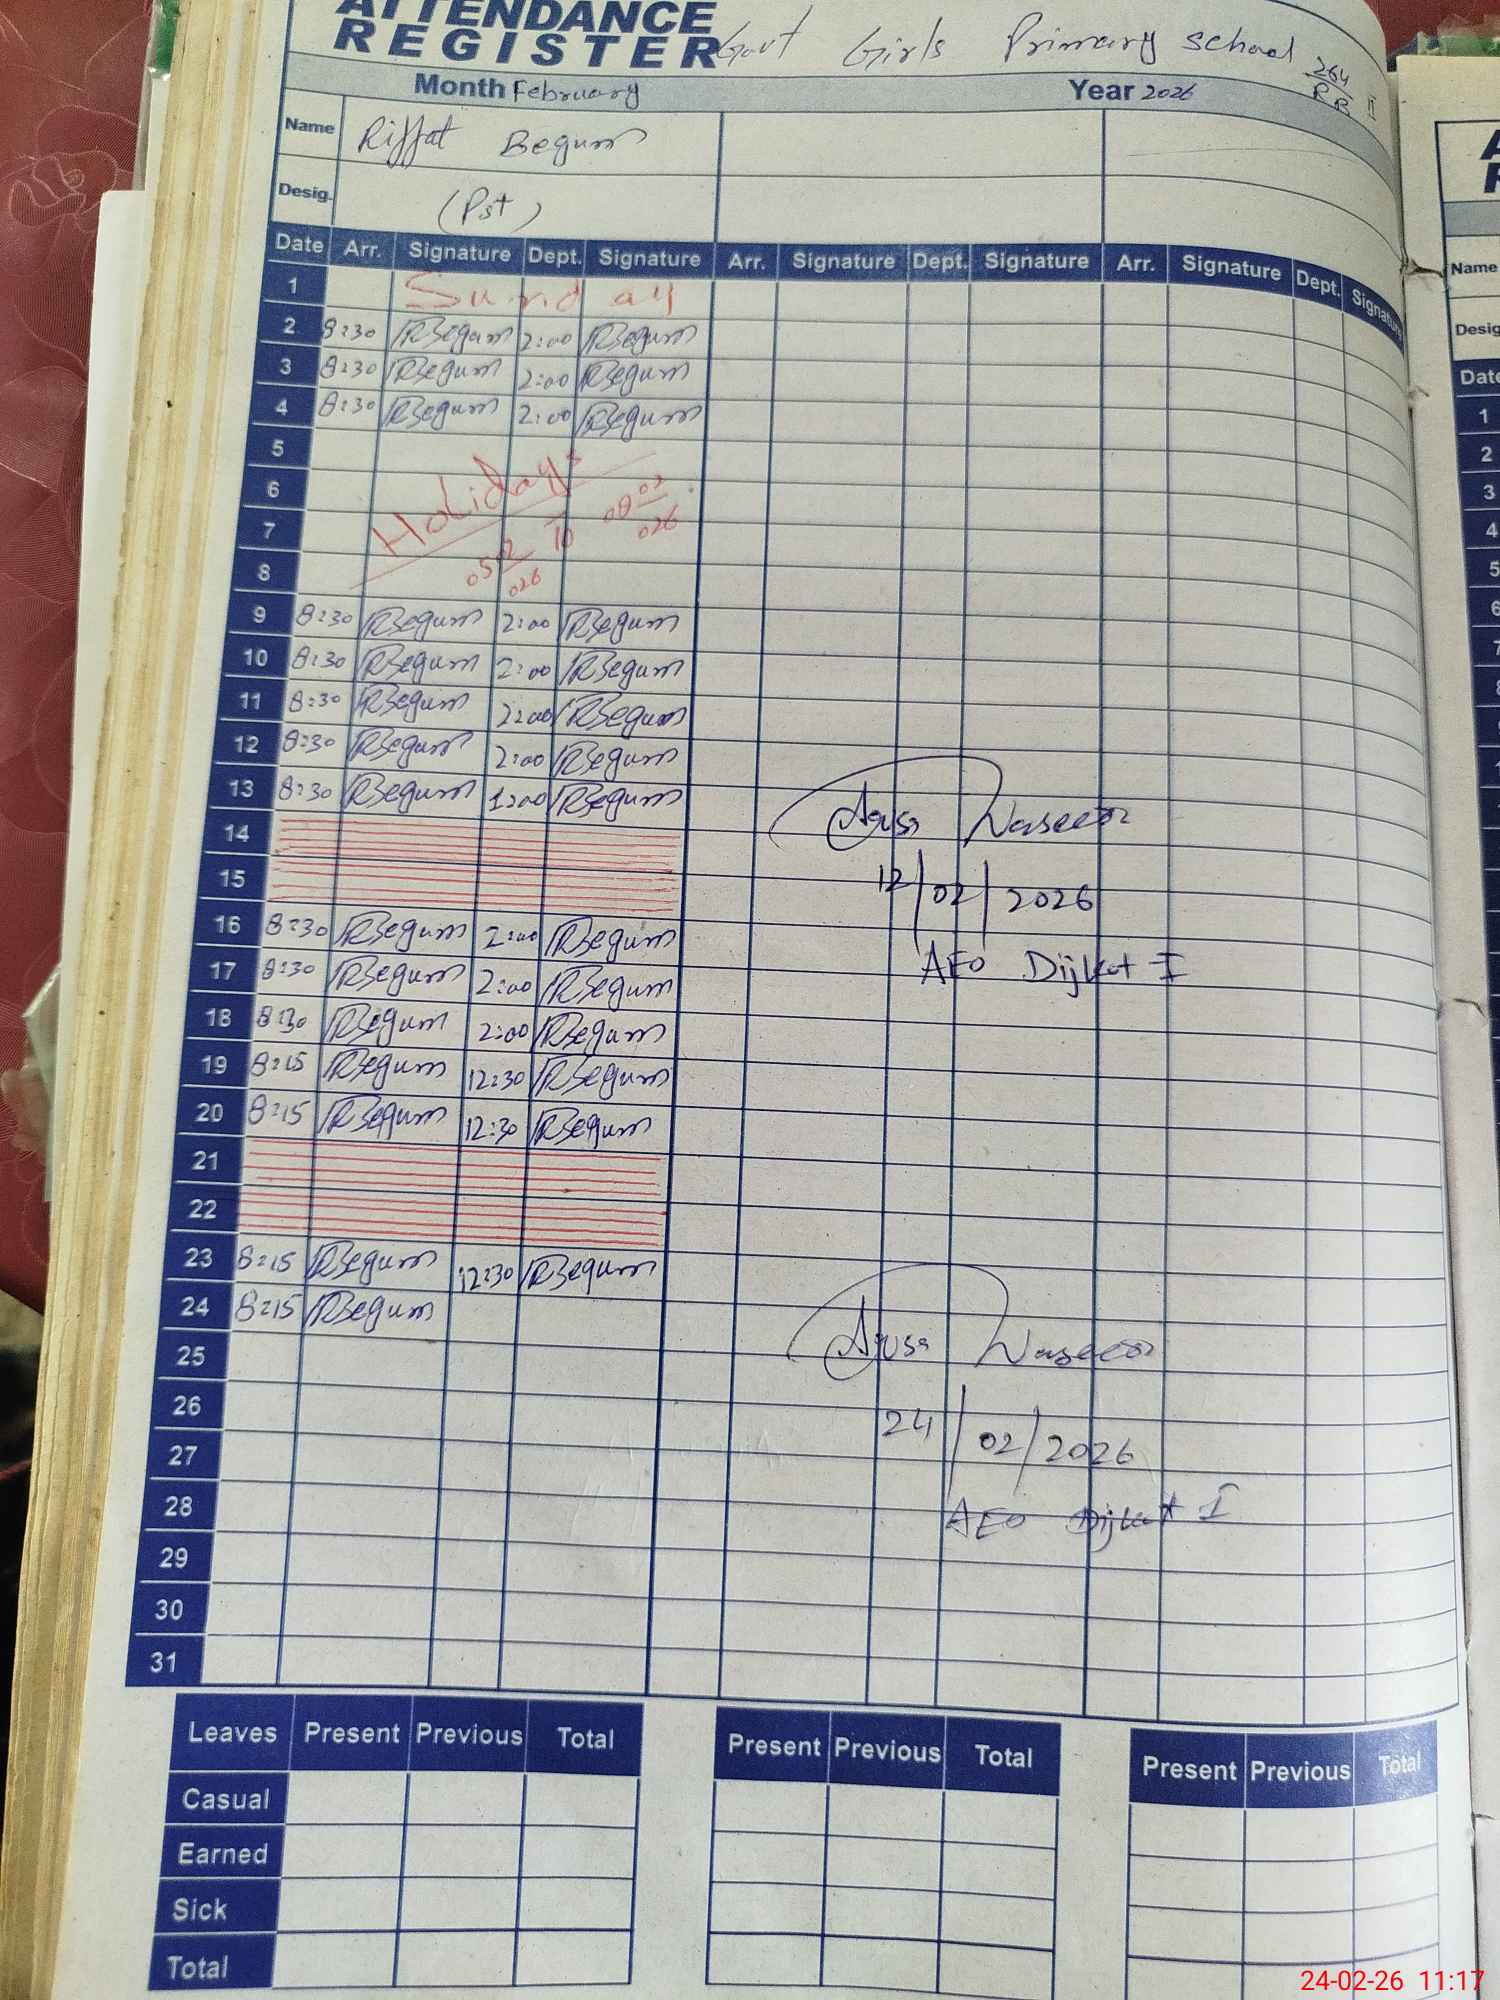 ATTENDANCE
REGISTER Govt Girls Primary school 264/RB II
Month February Year 2026
Name Riffat Begum
Desig. (Pst)
Date Arr. Signature Dept. Signature Arr. Signature Dept. Signature Arr. Signature Dept. Signature
1 Sunday
2 8:30 RBegum 2:00 RBegum
3 8:30 RBegum 2:00 RBegum
4 8:30 RBegum 2:00 RBegum
5
6 Holidays
7 05 02/026 To 08 02/026
8
9 8:30 RBegum 2:00 RBegum
10 8:30 RBegum 2:00 RBegum
11 8:30 RBegum 2:00 RBegum
12 8:30 RBegum 2:00 RBegum
13 8:30 RBegum 1:00 RBegum
Aqusa Naseer
14
15
12/02/2026
16 8:30 RBegum 2:00 RBegum
AEO Dijkot I
17 8:30 RBegum 2:00 RBegum
18 8:30 RBegum 2:00 RBegum
19 8:15 RBegum 12:30 RBegum
20 8:15 RBegum 12:30 RBegum
21
22
23 8:15 RBegum 12:30 RBegum
24 8:15 RBegum
25 Aqusa Naseer
26
27 24/02/2026
28 AEO Dijkot I
29
30
31
Leaves Present Previous Total Present Previous Total Present Previous Total
Casual
Earned
Sick
Total
Name
Desig
Date
1
2
3
4
5
6
7
24-02-26 11:17